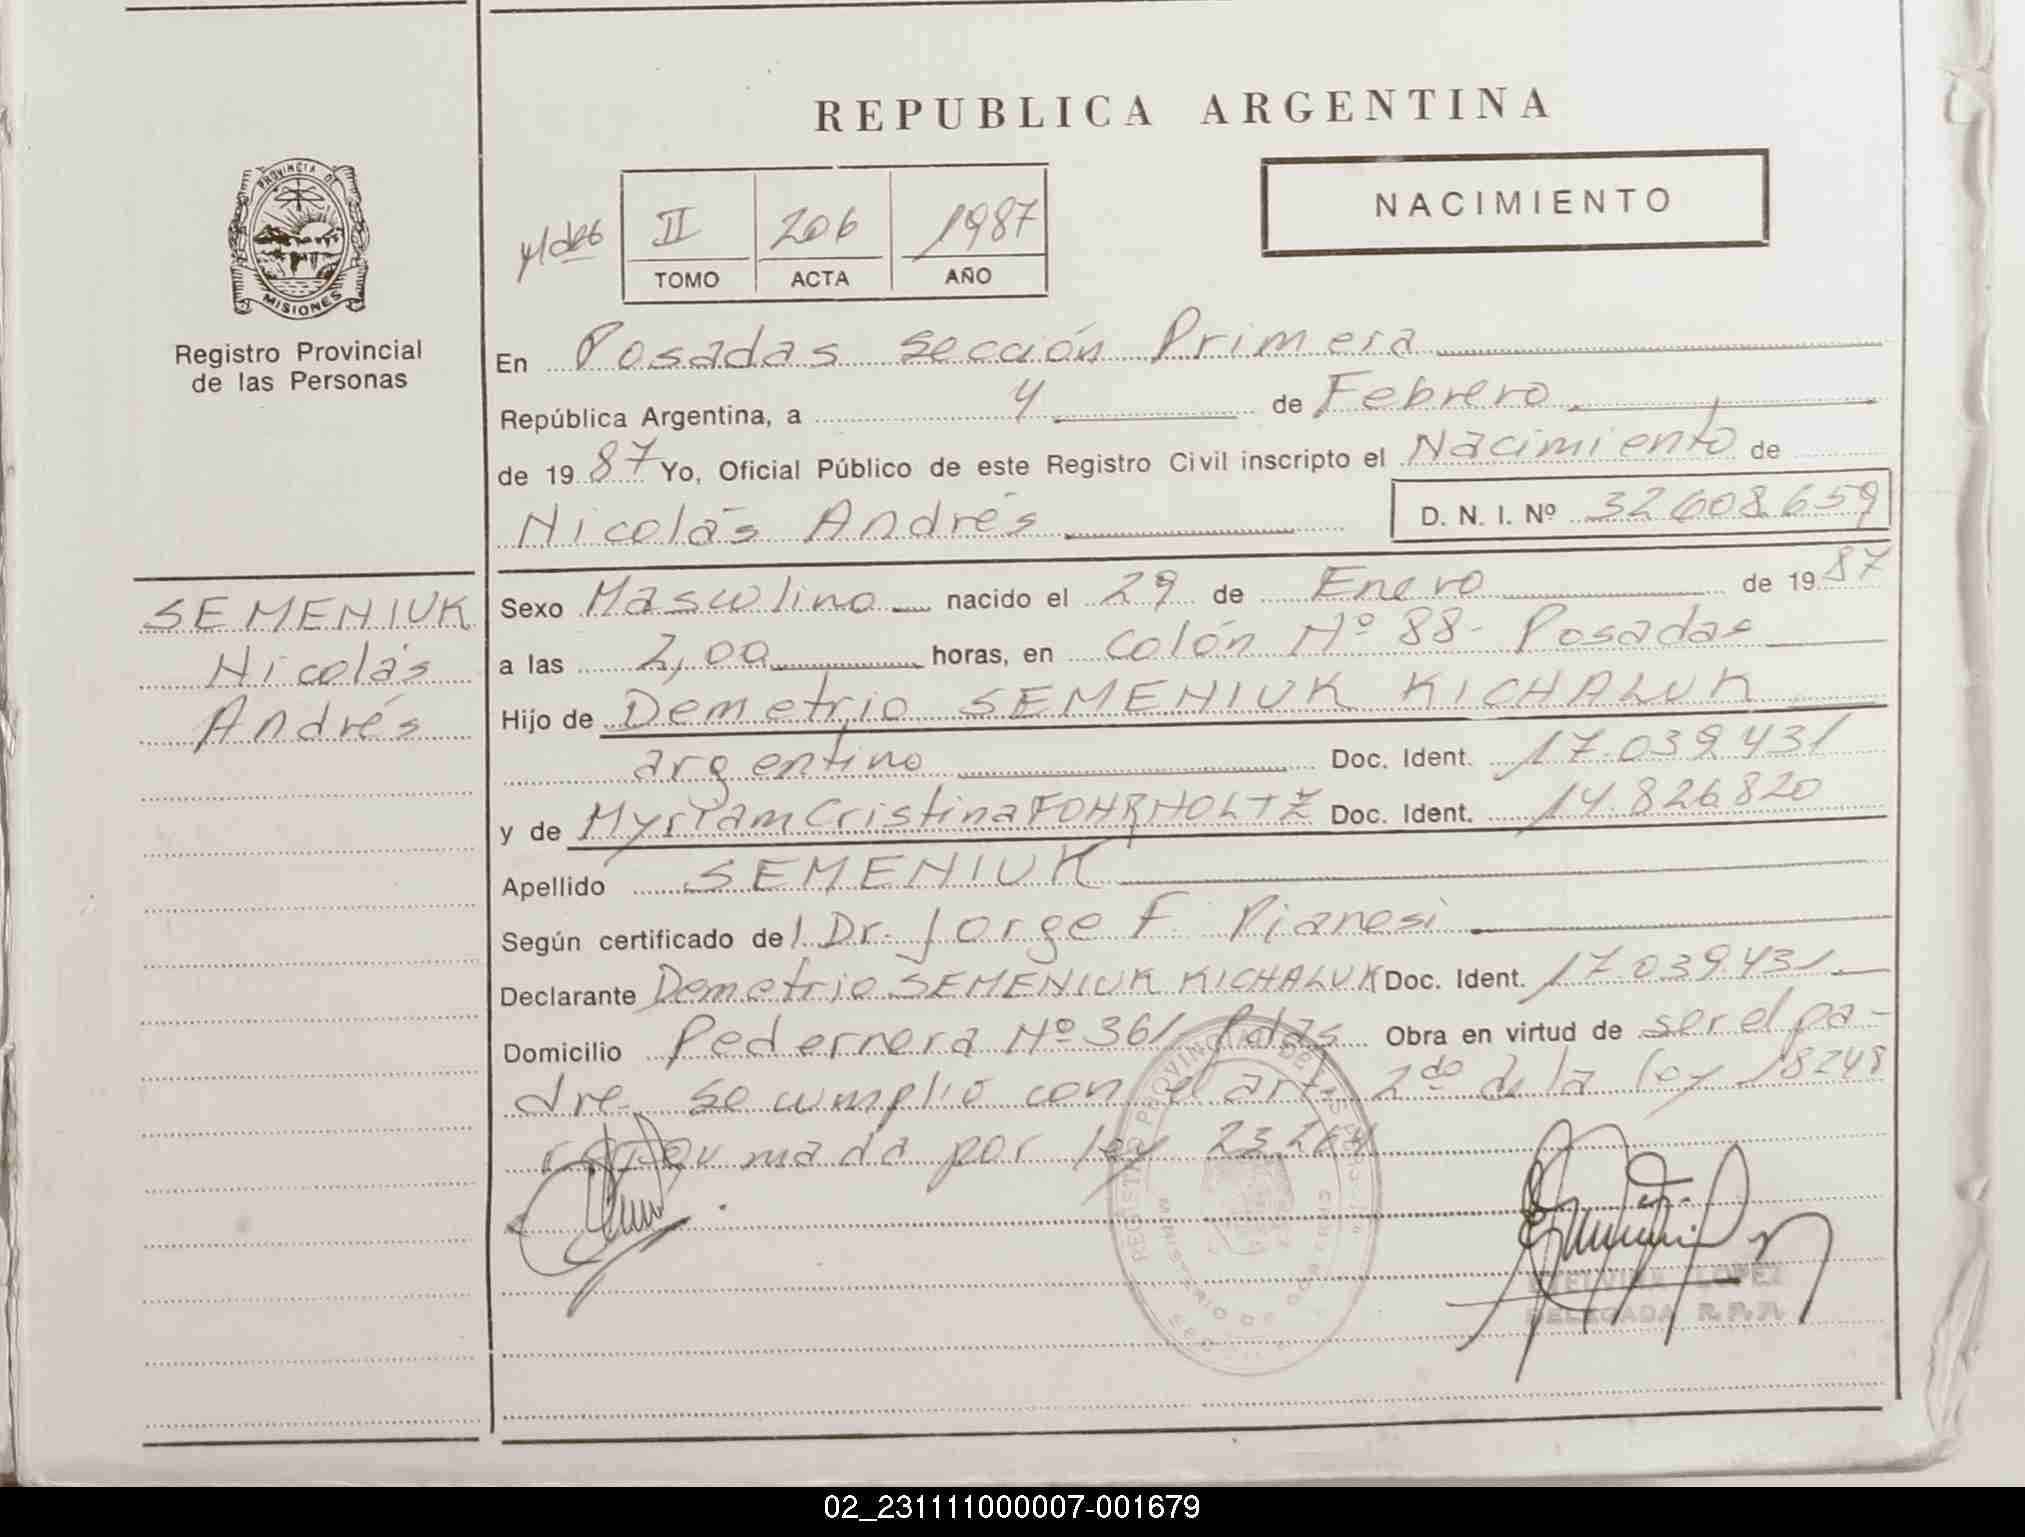 REPUBLICA ARGENTINA
PROVINCIA DE
MISIONES
Registro Provincial
de las Personas
NACIMIENTO
II 206 1987
TOMO ACTA AÑO
En Posadas Sección Primera
República Argentina, a 4 de Febrero
de 1987 Yo, Oficial Público de este Registro Civil inscripto el Nacimiento de
Nicolás Andrés D. N. I. Nº 32608.659
SEMENIUK
Nicolás
Andrés
Sexo Masculino nacido el 29 de Enero de 1987
a las 2,00 horas, en Colón Nº 88- Posadas
Hijo de Demetrio SEMENIUK KICHALUK
argentino Doc. Ident. 17.039.431
y de Myriam Cristina FOHRHOLTZ Doc. Ident. 14.826.820
Apellido SEMENIUK
Según certificado del Dr. Jorge F. Pianesi
Declarante Demetrio SEMENIUK KICHALUK Doc. Ident. 17.039.431
Domicilio Pedernera Nº 361 Pdas Obra en virtud de ser el pa-
dre. se cumplió con el art. 2do de la ley 18248
por ley 23.264
REGISTRO PROVINCIAL DE LAS PERSONAS
LOPEZ
DELEGADA R.P.P.
02_231111000007-001679